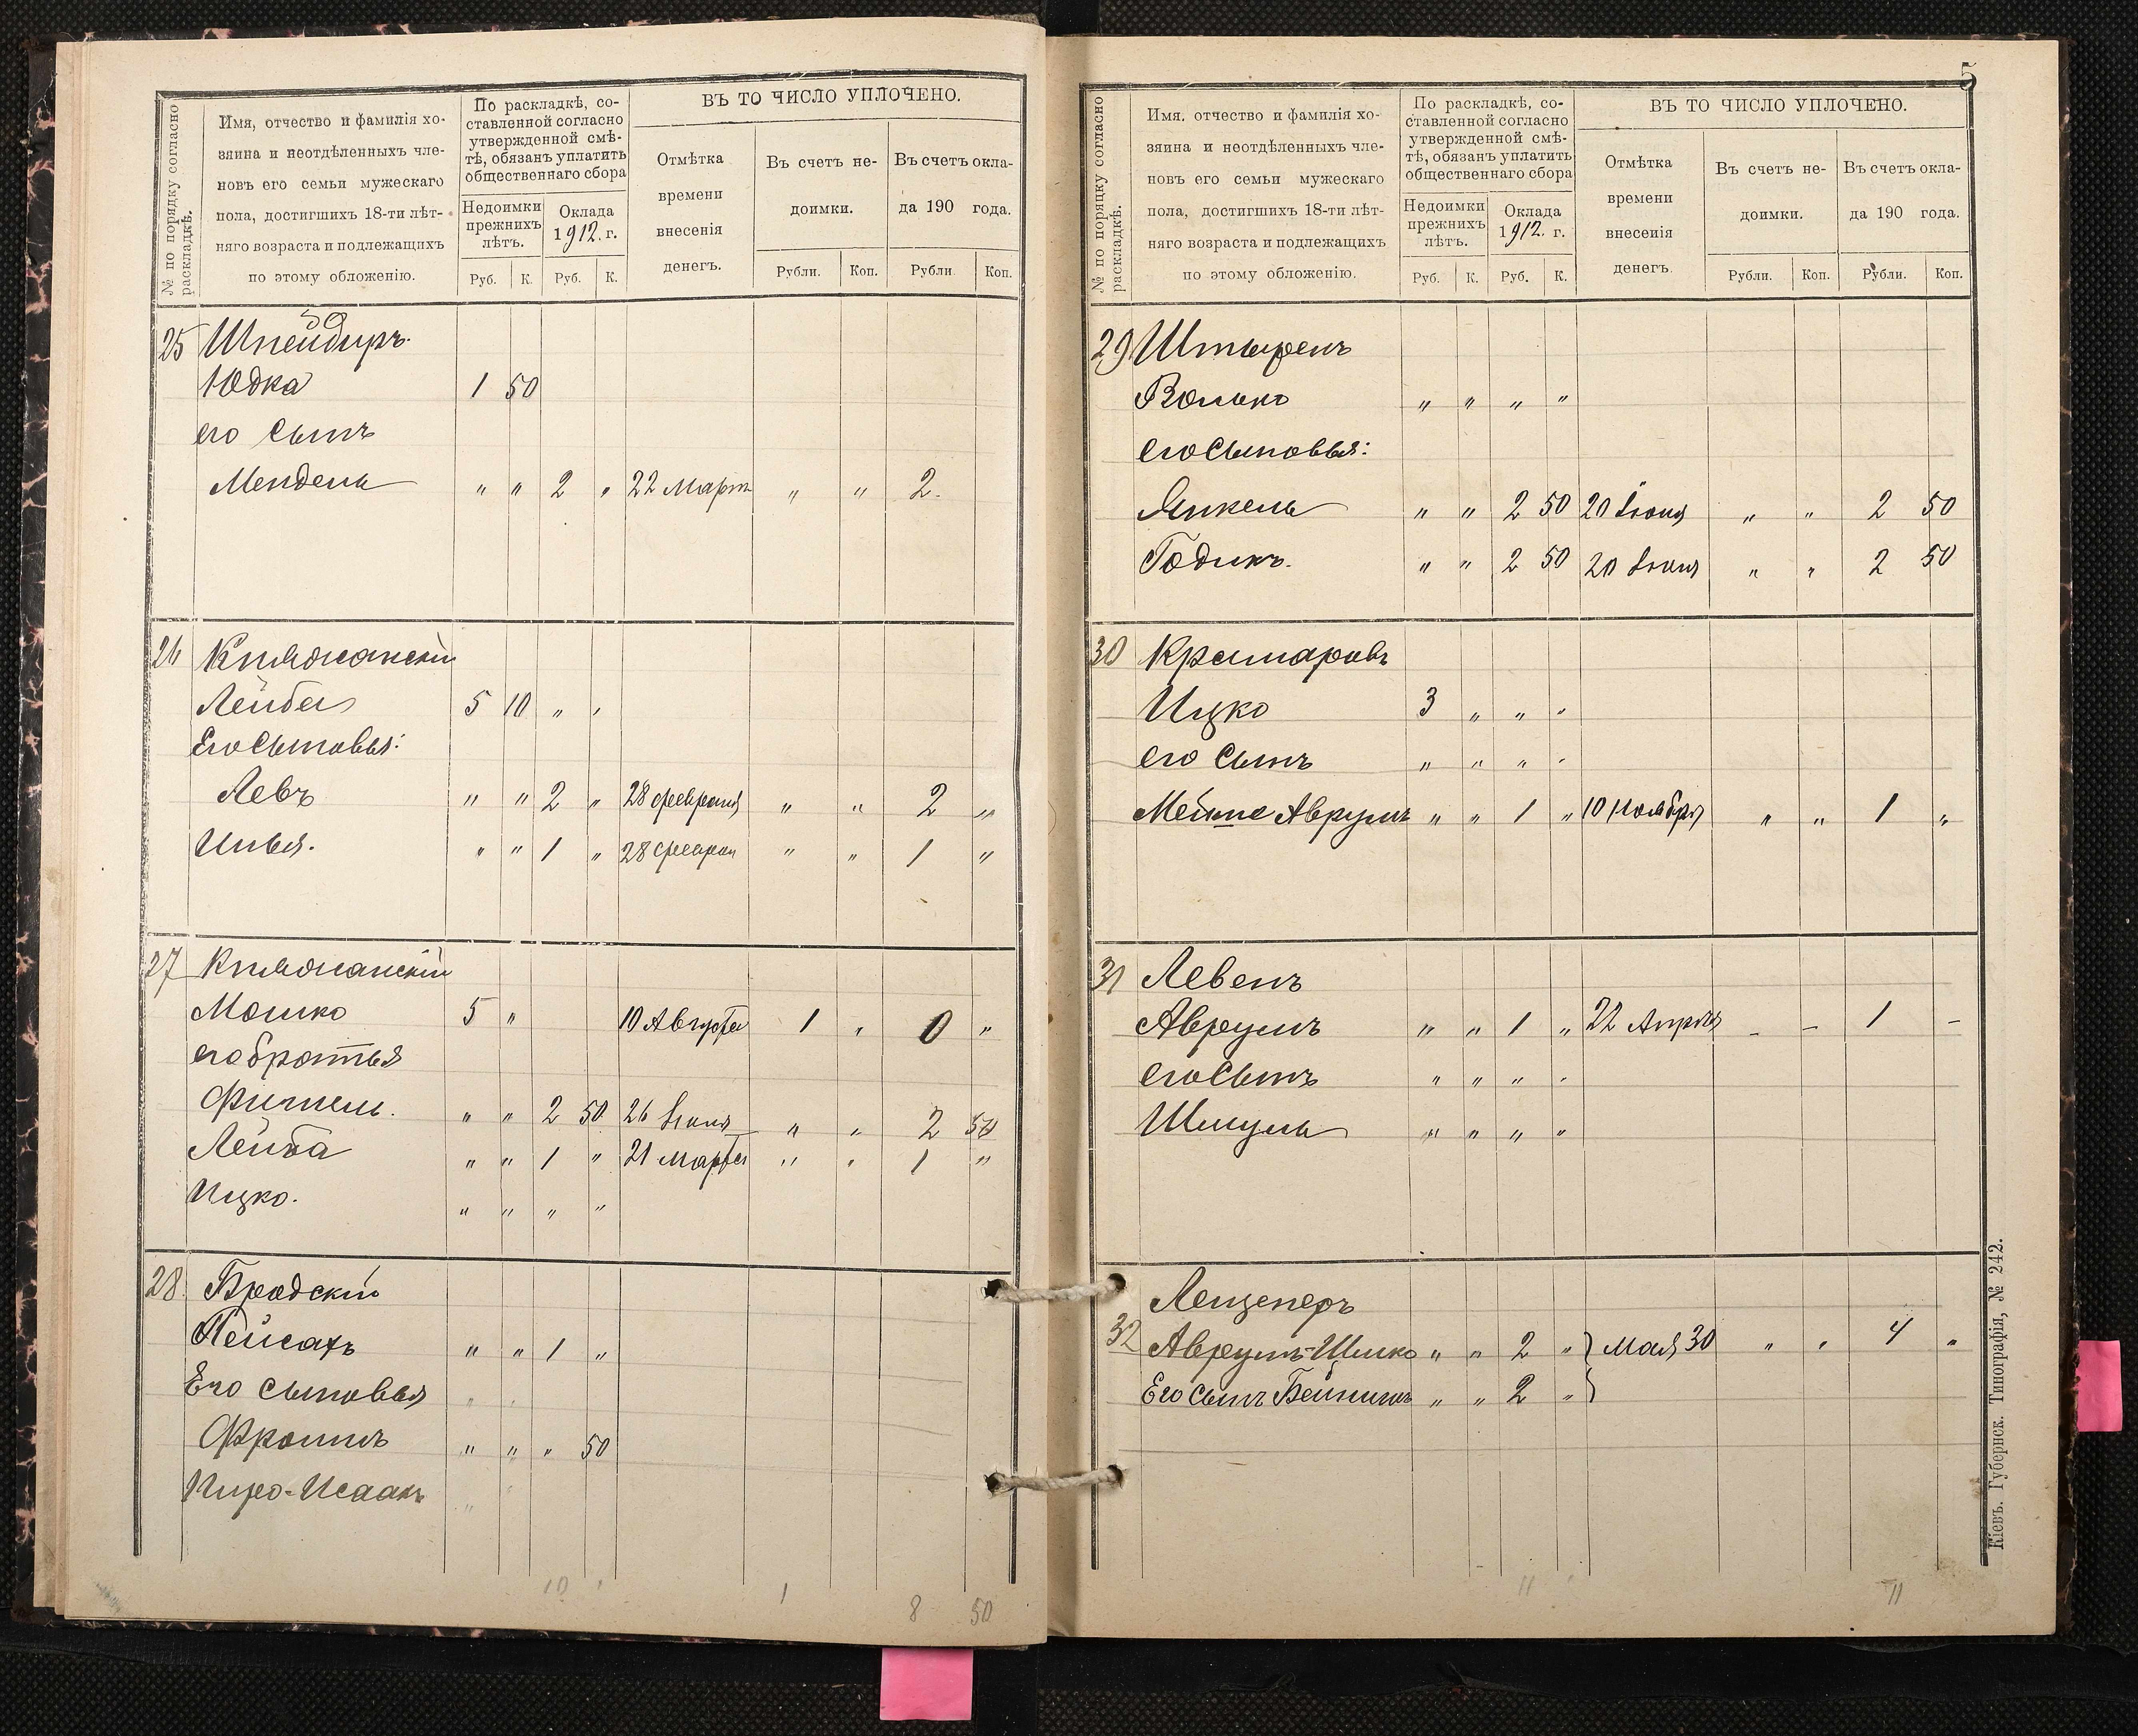 № по порядку согласно раскладкѣ.
Имя, отчество и фамилія хо-
зяина и неотдѣленныхъ чле-
новъ его семьи мужескаго
пола, достигшихъ 18-ти лѣт-
няго возраста и подлежащихъ
по этому обложенію.
По раскладкѣ, со-
ставленной согласно
утвержденной смѣ-
тѣ, обязанъ уплатить
общественнаго сбора
Недоимки прежнихъ лѣтъ.
Оклада 1912. г.
Руб. К. Руб. К.
ВЪ ТО ЧИСЛО УПЛОЧЕНО.
Отмѣтка времени внесенія денегъ.
Въ счетъ не-
доимки.
Въ счетъ окла-
да 190 года.
Рубли. Коп. Рубли Коп.
25 Шнейдиръ.
Юдка 1 50
его сынъ
Мендель " " 2 " 22 Март " " 2.
26 Княжанскій
Лейба 5 10 " "
Его Сыновья:
Левъ " " 2 " 28 февраля " " 2 "
" " 1 " 28 " " 1 "
27 Княжанскій
Мошко 5 " 10 Августа 1 " 0 "
его братья
Фишель. " " 2 50 26 Іюня " " 2 50
Лейба " " 1 " 21 Марта " " 1 "
Ицко. " " " "
28. Бродскій
Пейсахъ " " 1 "
Его сыновья " "
Фроимъ " " " 50
Ицко-Исаакъ " "
10 " 1 8 50
5
№ по порядку согласно раскладкѣ.
Имя. отчество и фамилія хо-
зяина и неотдѣленныхъ чле-
новъ его семьи мужескаго
пола, достигшихъ 18-ти лѣт-
няго возраста и подлежащихъ
по этому обложенію.
По раскладкѣ, со-
ставленной согласно
утвержденной смѣ-
тѣ, обязанъ уплатить
общественнаго сбора
Недоимки прежнихъ лѣтъ.
Оклада 1912. г.
Руб. К. Руб. К.
ВЪ ТО ЧИСЛО УПЛОЧЕНО.
Отмѣтка времени внесенія денегъ.
Въ счетъ не-
доимки.
Въ счетъ окла-
да 190 года.
Рубли. Коп. Рубли. Коп.
29 Штыренъ
Волько " " " "
его сыновья:
Янкель " " 2 50 20 Іюня " " 2 50
Годикъ. " " 2 50 20 Іюня " " 2 50
30 Крамаровъ
Ицко 3 " " "
его сынъ " " " "
Аврумъ " " 1 " 10 Ноября " " 1 "
31 Левенъ
Аврумъ " " 1 " 22 Апрѣля - - 1 -
его сынъ " " " "
Шмуль " " " "
Лещенеръ
32 Аврумъ-Шмко " " 2 " } Мая 30 " " 4 "
Его сынъ " " 2 " }
11 " 11
Кіевъ. Губернск. Типографія, № 242.